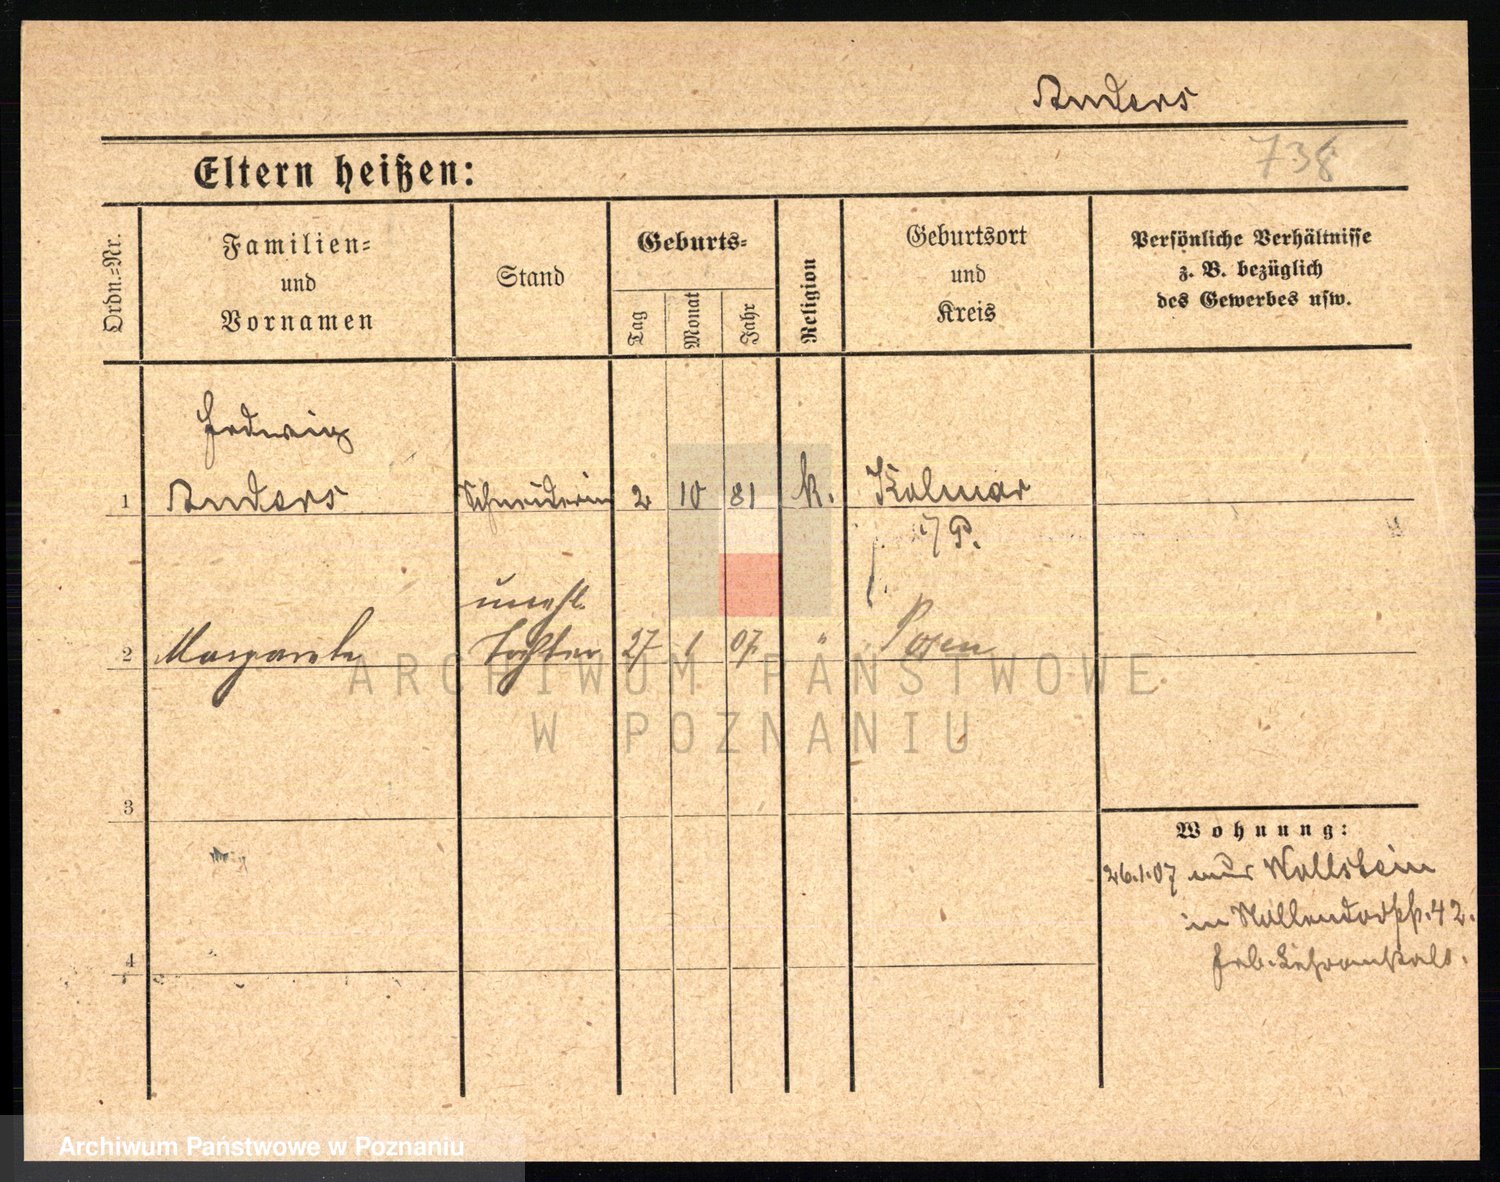 Anders
738
Eltern heißen:
Ordn.=Nr.
Familien=
und
Vornamen
Stand
Geburts=
Tag
Monat
Jahr
Religion
Geburtsort
und
Kreis
Persönliche Verhältnisse
z. B. bezüglich
des Gewerbes usw.
Hedwig
1 Anders Schneiderin 2 10 81 k. Kolmar
i/P.
unehl.
2 Margarete Tochter 27 1 07 " Posen
ARCHIWUM PAŃSTWOWE
W POZNANIU
3
Wohnung:
26.1.07 aus Wollstein
in Nollendorfstr. 42.
Heb. Lehranstalt.
4
Archiwum Państwowe w Poznaniu